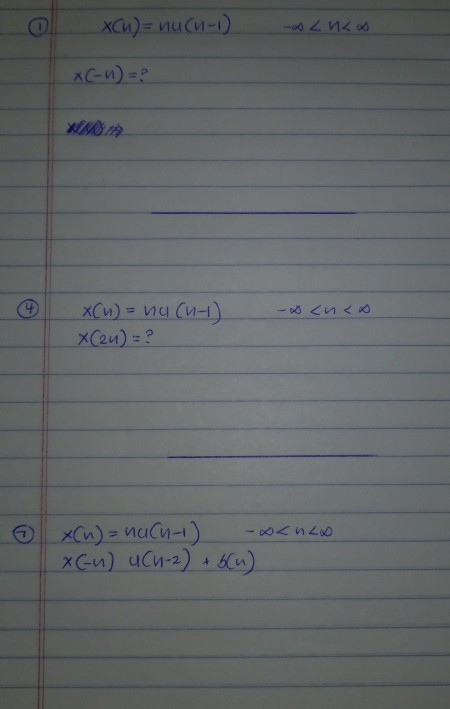 ① x(n) = nu(n-1) -∞ < n < ∞
x(-n) = ?
④ x(n) = nu(n-1) -∞ < n < ∞
x(2n) = ?
⑦ x(n) = nu(n-1) -∞ < n < ∞
x(-n) u(n-2) + δ(n)